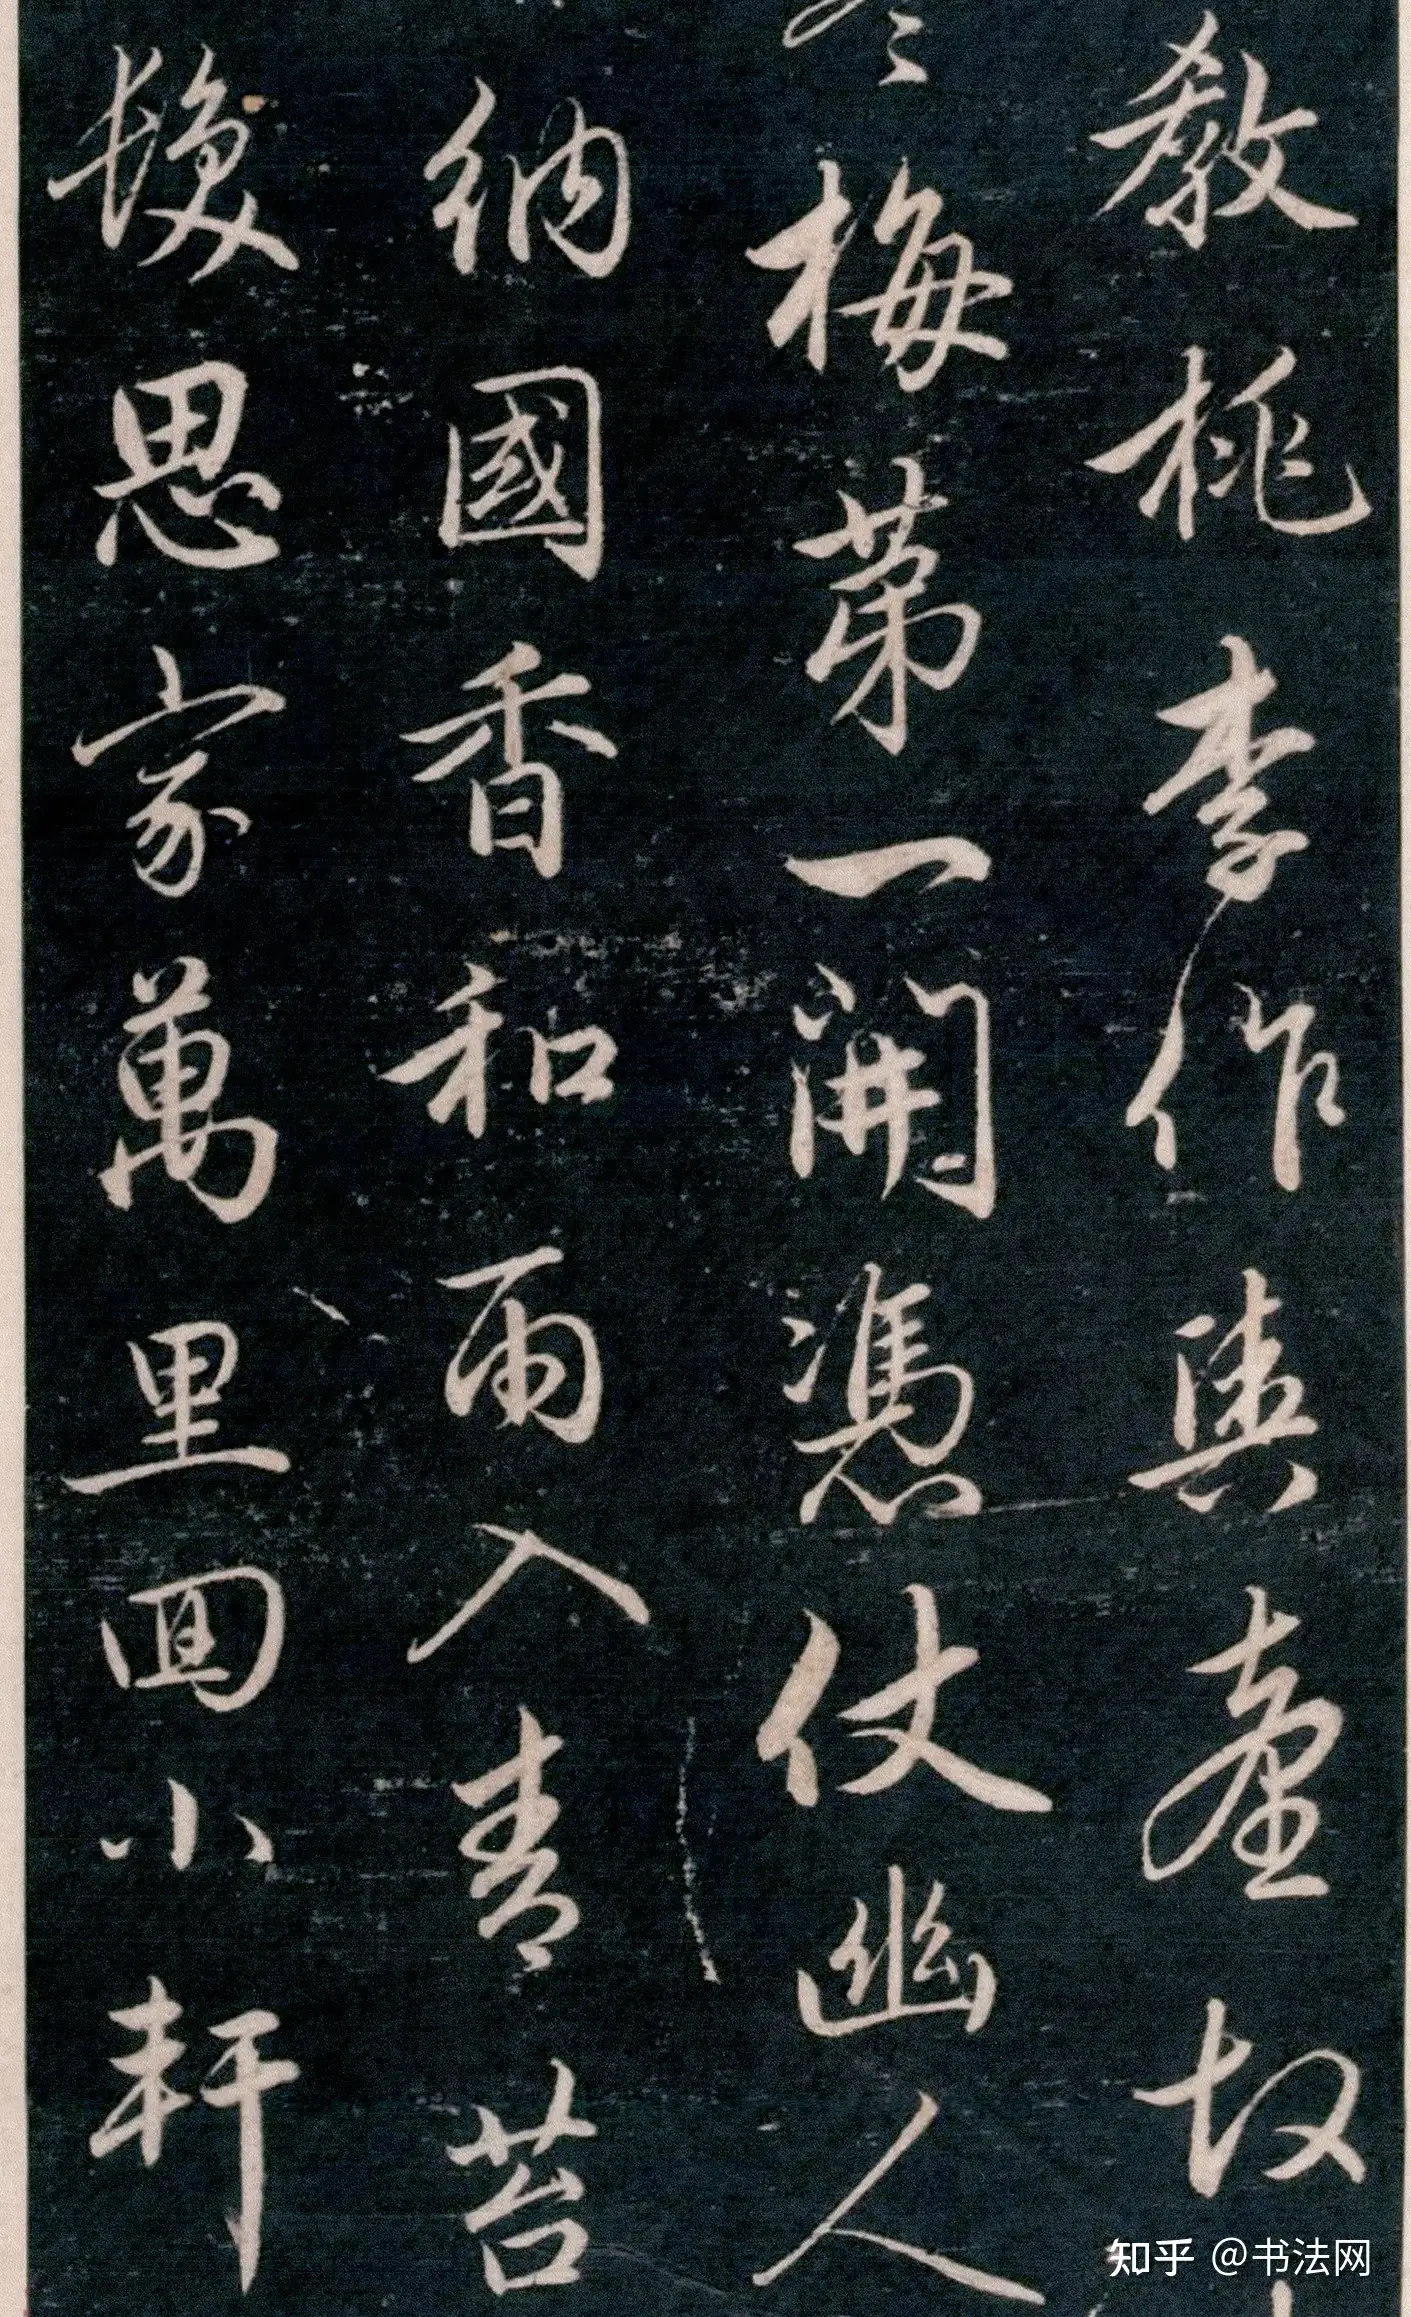 教桃李作輿臺故
冬梅第一開憑仗幽人
納國香和雨入青苔
煖思家萬里回小軒
知乎 @书法网